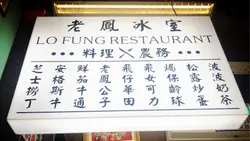 老鳳冰室
LO FUNG RESTAURANT
料理╳農務
波波奶茶
松露炒蛋
保齡球
飛女可力
飛仔華田
老鳳公子
鮮茄牛通
安格斯牛
芝士撈丁